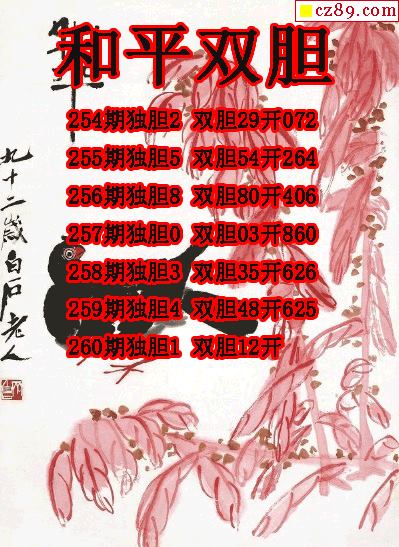 cz89.com
和平双胆
254期独胆2 双胆29开072
255期独胆5 双胆54开264
256期独胆8 双胆80开406
257期独胆0 双胆03开860
258期独胆3 双胆35开626
259期独胆4 双胆48开625
260期独胆1 双胆12开
九十二岁白石老人